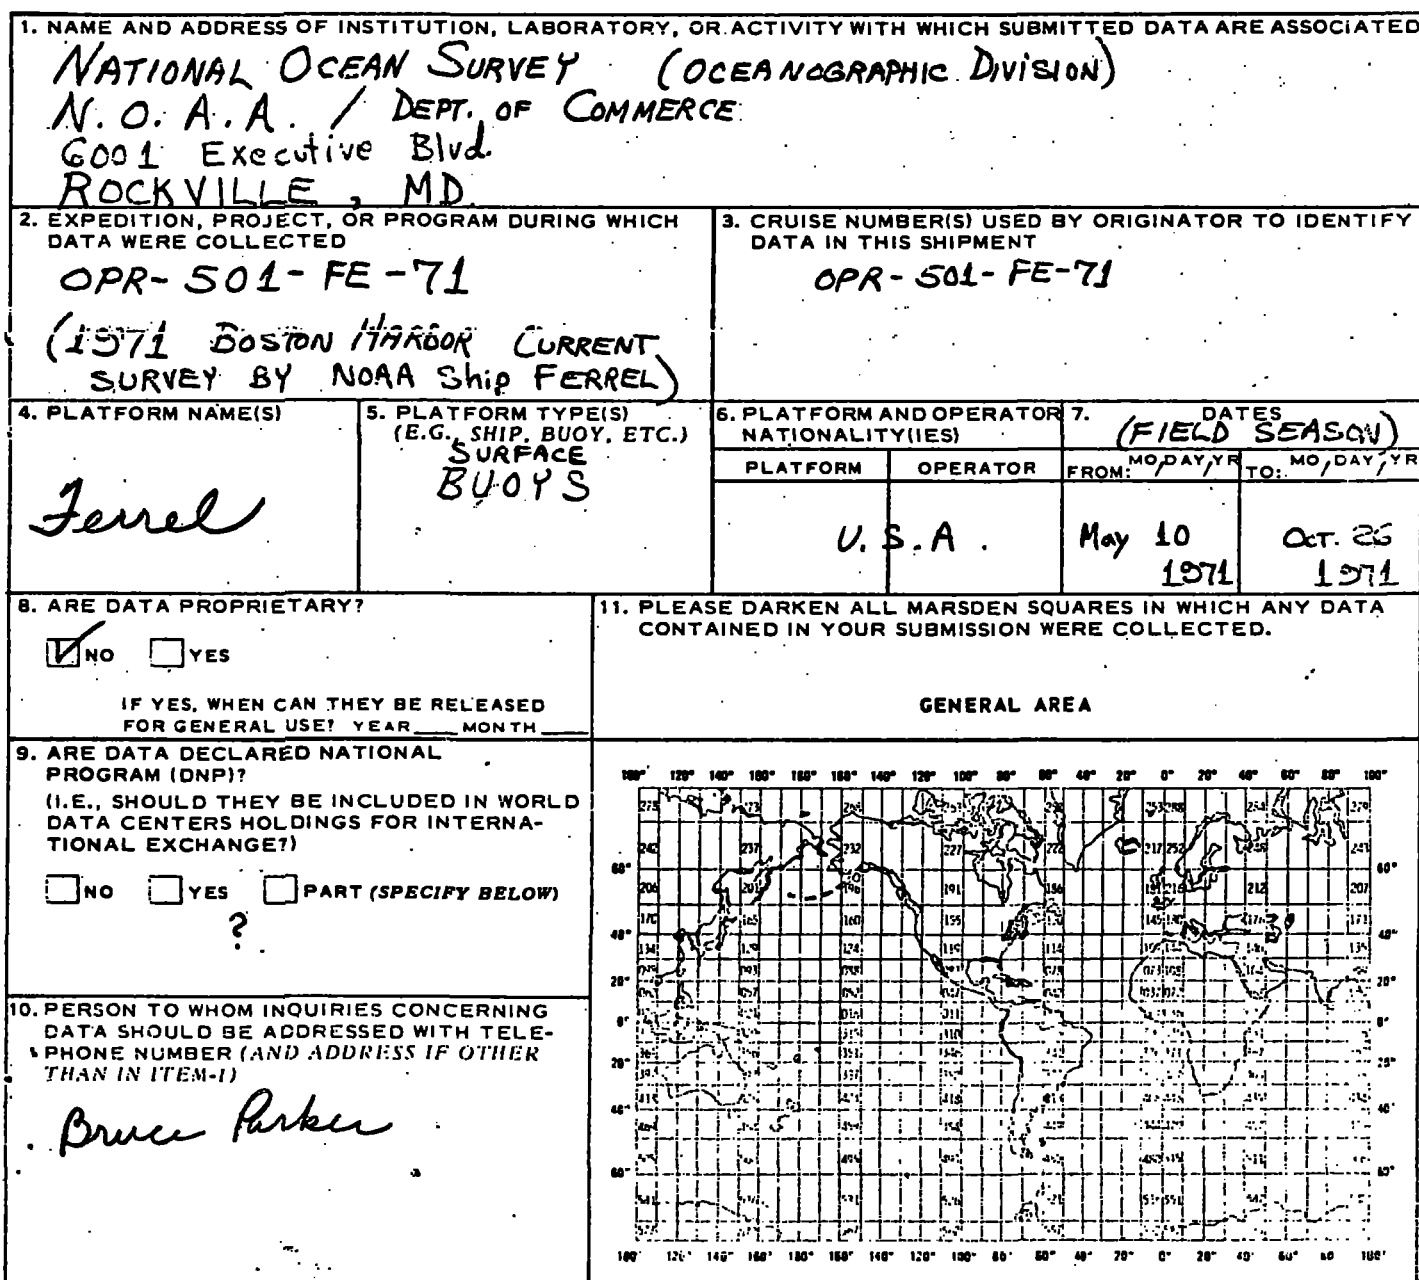 1. NAME AND ADDRESS OF INSTITUTION, LABORATORY, OR ACTIVITY WITH WHICH SUBMITTED DATA ARE ASSOCIATED
NATIONAL OCEAN SURVEY (OCEANOGRAPHIC DIVISION)
N. O. A. A. / DEPT. OF COMMERCE
6001 Executive Blvd.
ROCKVILLE, MD.
2. EXPEDITION, PROJECT, OR PROGRAM DURING WHICH
DATA WERE COLLECTED
OPR- 501- FE -71
(1971 BOSTON HARBOR CURRENT
SURVEY BY NOAA Ship FERREL)
3. CRUISE NUMBER(S) USED BY ORIGINATOR TO IDENTIFY
DATA IN THIS SHIPMENT
OPR- 501- FE-71
4. PLATFORM NAME(S)
Ferrel
5. PLATFORM TYPE(S)
(E.G., SHIP, BUOY, ETC.)
SURFACE
BUOYS
6. PLATFORM AND OPERATOR
NATIONALITY(IES)
PLATFORM OPERATOR
U. S. A.
7. DATES
(FIELD SEASON)
FROM: MO, DAY, YR TO: MO, DAY, YR
May 10 Oct. 26
1971 1971
8. ARE DATA PROPRIETARY?
NO YES
IF YES, WHEN CAN THEY BE RELEASED
FOR GENERAL USE? YEAR____ MONTH____
9. ARE DATA DECLARED NATIONAL
PROGRAM (DNP)?
(I.E., SHOULD THEY BE INCLUDED IN WORLD
DATA CENTERS HOLDINGS FOR INTERNA-
TIONAL EXCHANGE?)
NO YES PART (SPECIFY BELOW)
?
10. PERSON TO WHOM INQUIRIES CONCERNING
DATA SHOULD BE ADDRESSED WITH TELE-
PHONE NUMBER (AND ADDRESS IF OTHER
THAN IN ITEM-1)
Bruce Parker
11. PLEASE DARKEN ALL MARSDEN SQUARES IN WHICH ANY DATA
CONTAINED IN YOUR SUBMISSION WERE COLLECTED.
GENERAL AREA
120° 140° 160° 180° 160° 140° 120° 100° 80° 60° 40° 20° 0° 20° 40° 60° 80° 100°
60° 60°
40° 40°
20° 20°
0° 0°
20° 20°
40° 40°
60° 60°